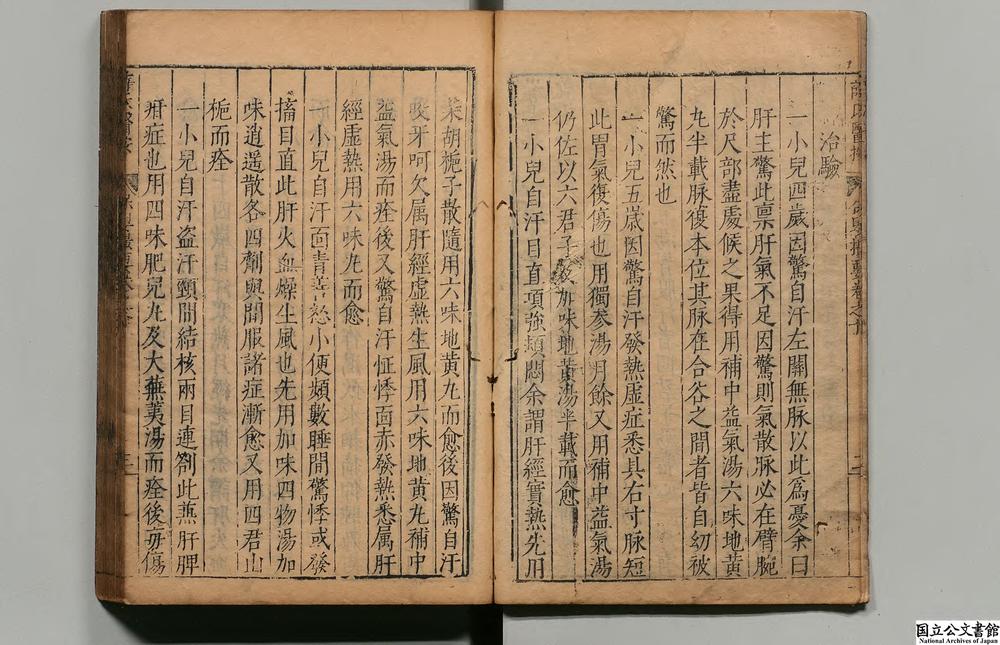 治驗
一小兒四歲因驚自汗左關無脉以此爲憂余曰
肝主驚此禀肝氣不足因驚則氣散脉必在臂腕
於尺部盡處候之果得用補中益氣湯六味地黄
九半載脉復本位其脉在合谷之間者皆自幼被
驚而然也
一小兒五歲因驚自汗發熱虚症悉具右寸脉短
此胃氣復傷也用獨参湯月餘又用補中益氣湯
仍佐以六君子及加味地黄湯半載而愈
一小兒自汗目直項強頰悶余謂肝經實熱先用
柴胡梔子散隨用六味地黄九而愈後因驚自汗
咬牙呵欠属肝經虚熱生風用六味地黄九補中
益氣湯而痊後又驚自汗怔悸面赤發熱悉属肝
經虚熱用六味九而愈
一小兒自汗面青善怒小便頻數睡間驚悸或發
搐目直此肝火血燥生風也先用加味四物湯加
味逍遥散各四劑與間服諸症漸愈又用四君山
梔而痊
一小兒自汗盗汗頸間結核兩目連劄此兼肝脾
疳症也用四味肥兒九及大蕪荑湯而痊後毋傷
国立公文書館
National Archives of Japan